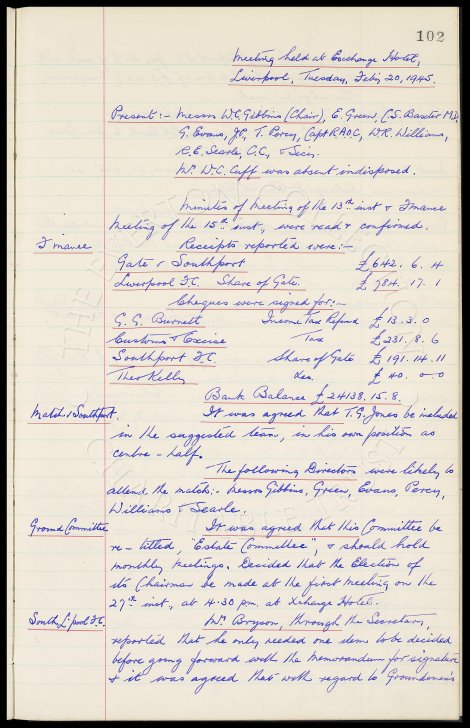 102
Meeting held at Exchange Hotel,
Liverpool, Tuesday, Feby 20, 1945.
Present:- Messrs W.C. Gibbins (Chair), E. Green, C.S. Baxter M.B.,
G. Evans, J.P., T. Percy, Capt R.A.O.C., W.R. Williams,
R.E. Searle, C.C., & Secy.
Mr. W.C. Cuff was absent indisposed.
Minutes of Meeting of the 13th inst & Finance
Meeting of the 15th inst, were read & confirmed.
Finance Receipts reported were:-
Gate v Southport £642. 6. 4
Liverpool F.C. Share of Gate. £784. 17. 1
Cheques were signed for:-
G. G. Burnett Income Tax Refund £13. 3. 0
Customs & Excise Tax £231. 8. 6
Southport F.C. Share of Gate £191. 14. 11
Theo Kelly Exs. £40. 0 0
Bank Balance £24138. 15. 8.
Match v Southport. It was agreed that T.G. Jones be included
in the suggested team, in his own position as
centre-half.
The following Directors were likely to
attend the match:- Messrs Gibbins, Green, Evans, Percy,
Williams & Searle.
Ground Committee It was agreed that this Committee be
re-titled, "Estate Committee", & should hold
monthly meetings. Decided that the Election of
its Chairman be made at the first Meeting on the
27th inst., at 4.30 pm. at Xchange Hotel.
South L'pool F.C. Mr. Bryson, through the Secretary,
reported that he only needed one item to be decided
before going forward with the Memorandum for signature
& it was agreed that with regard to Groundsman's